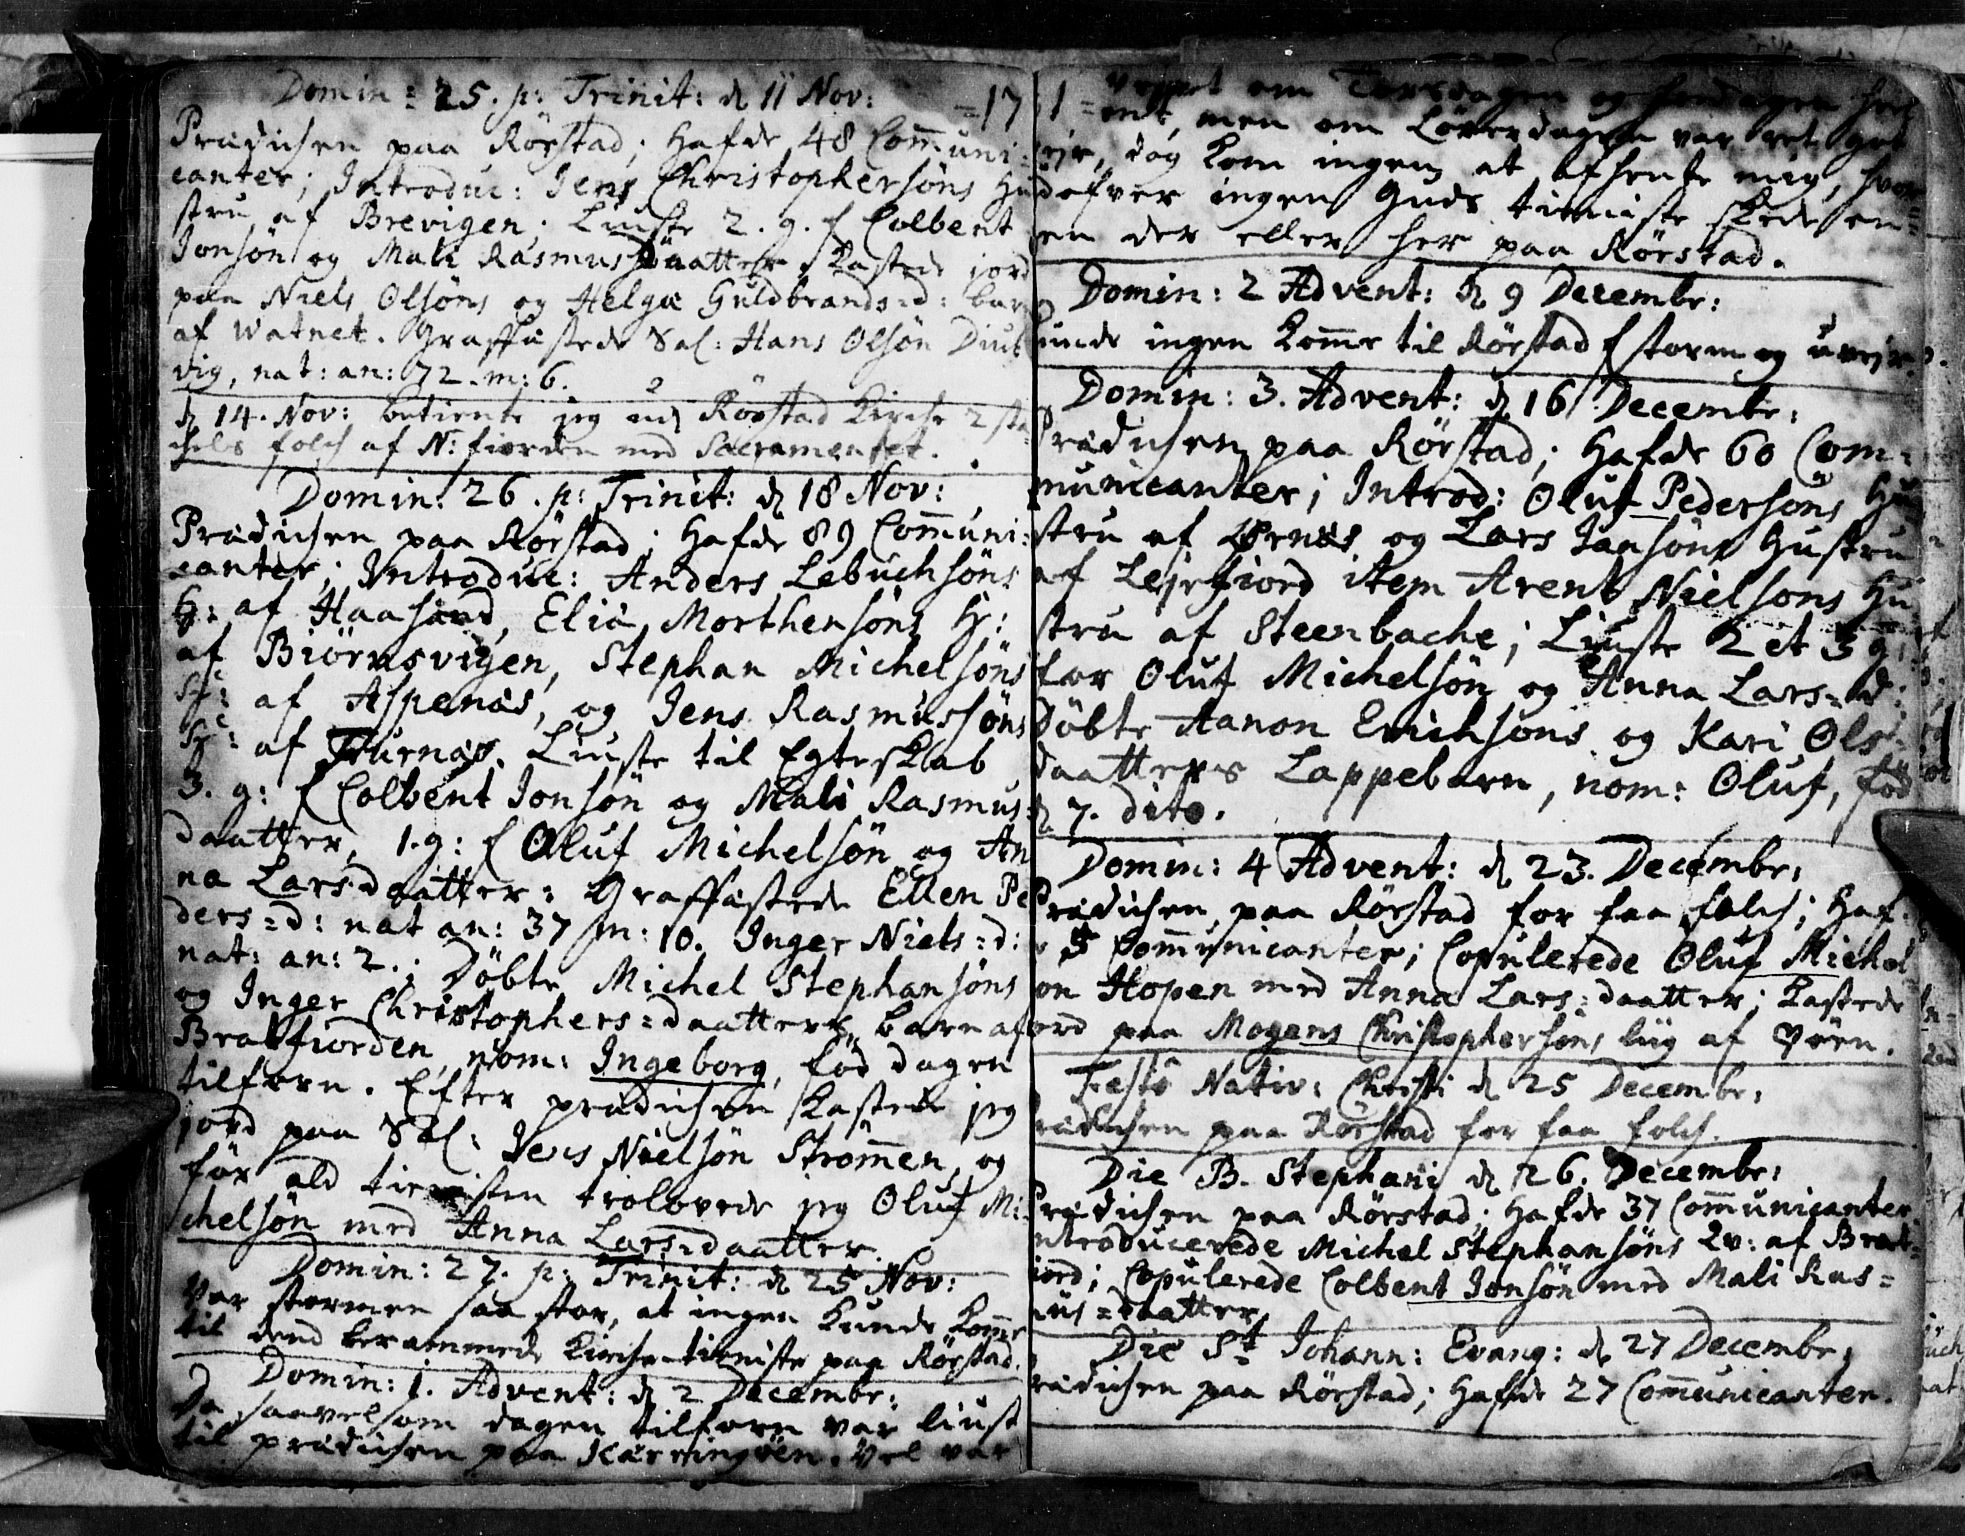 Domin: 25. p: Trinit: d 11 Nov: =17
Prædichen paa Rörstad; Hafde 48 Com̄uni:
canter; Introduc: Jens Christophersöns Hu
stru af Brevigen; Liuste 2. g. f Colbent
Jonsön og Mali Rasmusdaatter, kastede jord
paa Niels Olsöns og Helgæ Guldbrands=d: barn
af Watnet. Graffæstede Sal: Hans Olsön Diub
vig, nat: an: 72. m: 6.
d 14. Nov: betiente jeg ud Rörstad Kirche 2 sta
chels folch af N: fiorden med Sacramentet.
Domin: 26. p: Trinit: d 18 Nov:
Prædichen paa Rörstad; Hafde 89 Com̄uni:
canter; Introduc: Anders Lebuchsöns
H: af Haasand, Eliæ Morthensöns H:
af Biörnsvigen, Stephan Michelsöns
H: af Aspenæs, og Jens Rasmussöns
H: af Furnæs. Liuste til Egteskab
3. g: f Colbent Jonsön og Mali Rasmus:
daatter, 1. g: f Oluf Michelsön og An
na Larsdaatter: Graffæstede Ellen Pe
ders=d: nat an: 37 m: 10. Inger Niels=d:
nat: an: 2.; Döbte Michel Stephansöns
og Inger Christophers=daatters barn af
Bratfiorden, nom: Ingeborg, fød dagen
tilforn. Efter prædichen kastede jeg
jord paa Sal: Jens Nielsön Strömmen, og
för ald tienisten trolovede jeg Oluf Mi:
chelsön med Anna Larsdaatter.
Domin: 27. p: Trinit: d 25 Nov:
Var stormen saa stor, at ingen kunde komme
til dend berammede Kirche-tieniste paa Rörstad.
Domin: 1. Advent: d 2 Decembr:
Da saavelsom dagen tilforn var liust
til prædichen paa Kærringöen. Vel var
1 Veyret om Torsdagen og fredagen
ondt, men om Löverdagen var ret got
vejr, dog kom ingen at afhente mig, hvor
dofver ingen Guds tieniste skede en=
en der eller her paa Rörstad.
Domin: 2 Advent: d 9 Decembr:
kunde ingen komme til Rörstad f storm og uvejr.
Domin: 3. Advent: d 16 Decembr:
Prædichen paa Rörstad; Hafde 60 Com=
municanter; Introd: Oluf Pedersöns Hu
stru af Ørnæs og Lars Jansöns Hustru
af Lejrfiord item Arent Nielsons Hu
stru af Steenbache; Liuste 2 et 3 g:
for Oluf Michelsön og Anna Lars=d:
Döbte Aanon Erichsöns og Kari Ols=
daatters Lappebarn, nom: Oluf, fød
d 7. dito.
Domin: 4 Advent: d 23. Decembr:
Prædichen paa Rörstad for faa folch; Haf=
5 Com̄unicanter; Copulerede Oluf Michel
on Hopen med Anna Lars=daatter; kastede
jord paa Mogens Christophersöns liig af Vöen.
Festo Nativ: Christi d 25 Decembr:
Prædichen paa Rörstad for faa folch.
Die B. Stephani d 26. Decembr:
Prædichen paa Rörstad; Hafde 37 Com̄unicanter
Introducerede Michel Stephansöns Qv: af Brat=
fiord; Copulerede Colbent Jonsön med Mali Ras=
mus=daatter.
Die St Johann: Evang: d 27 Decembr:
Prædichen paa Rörstad; Hafde 27 Com̄unicanter.